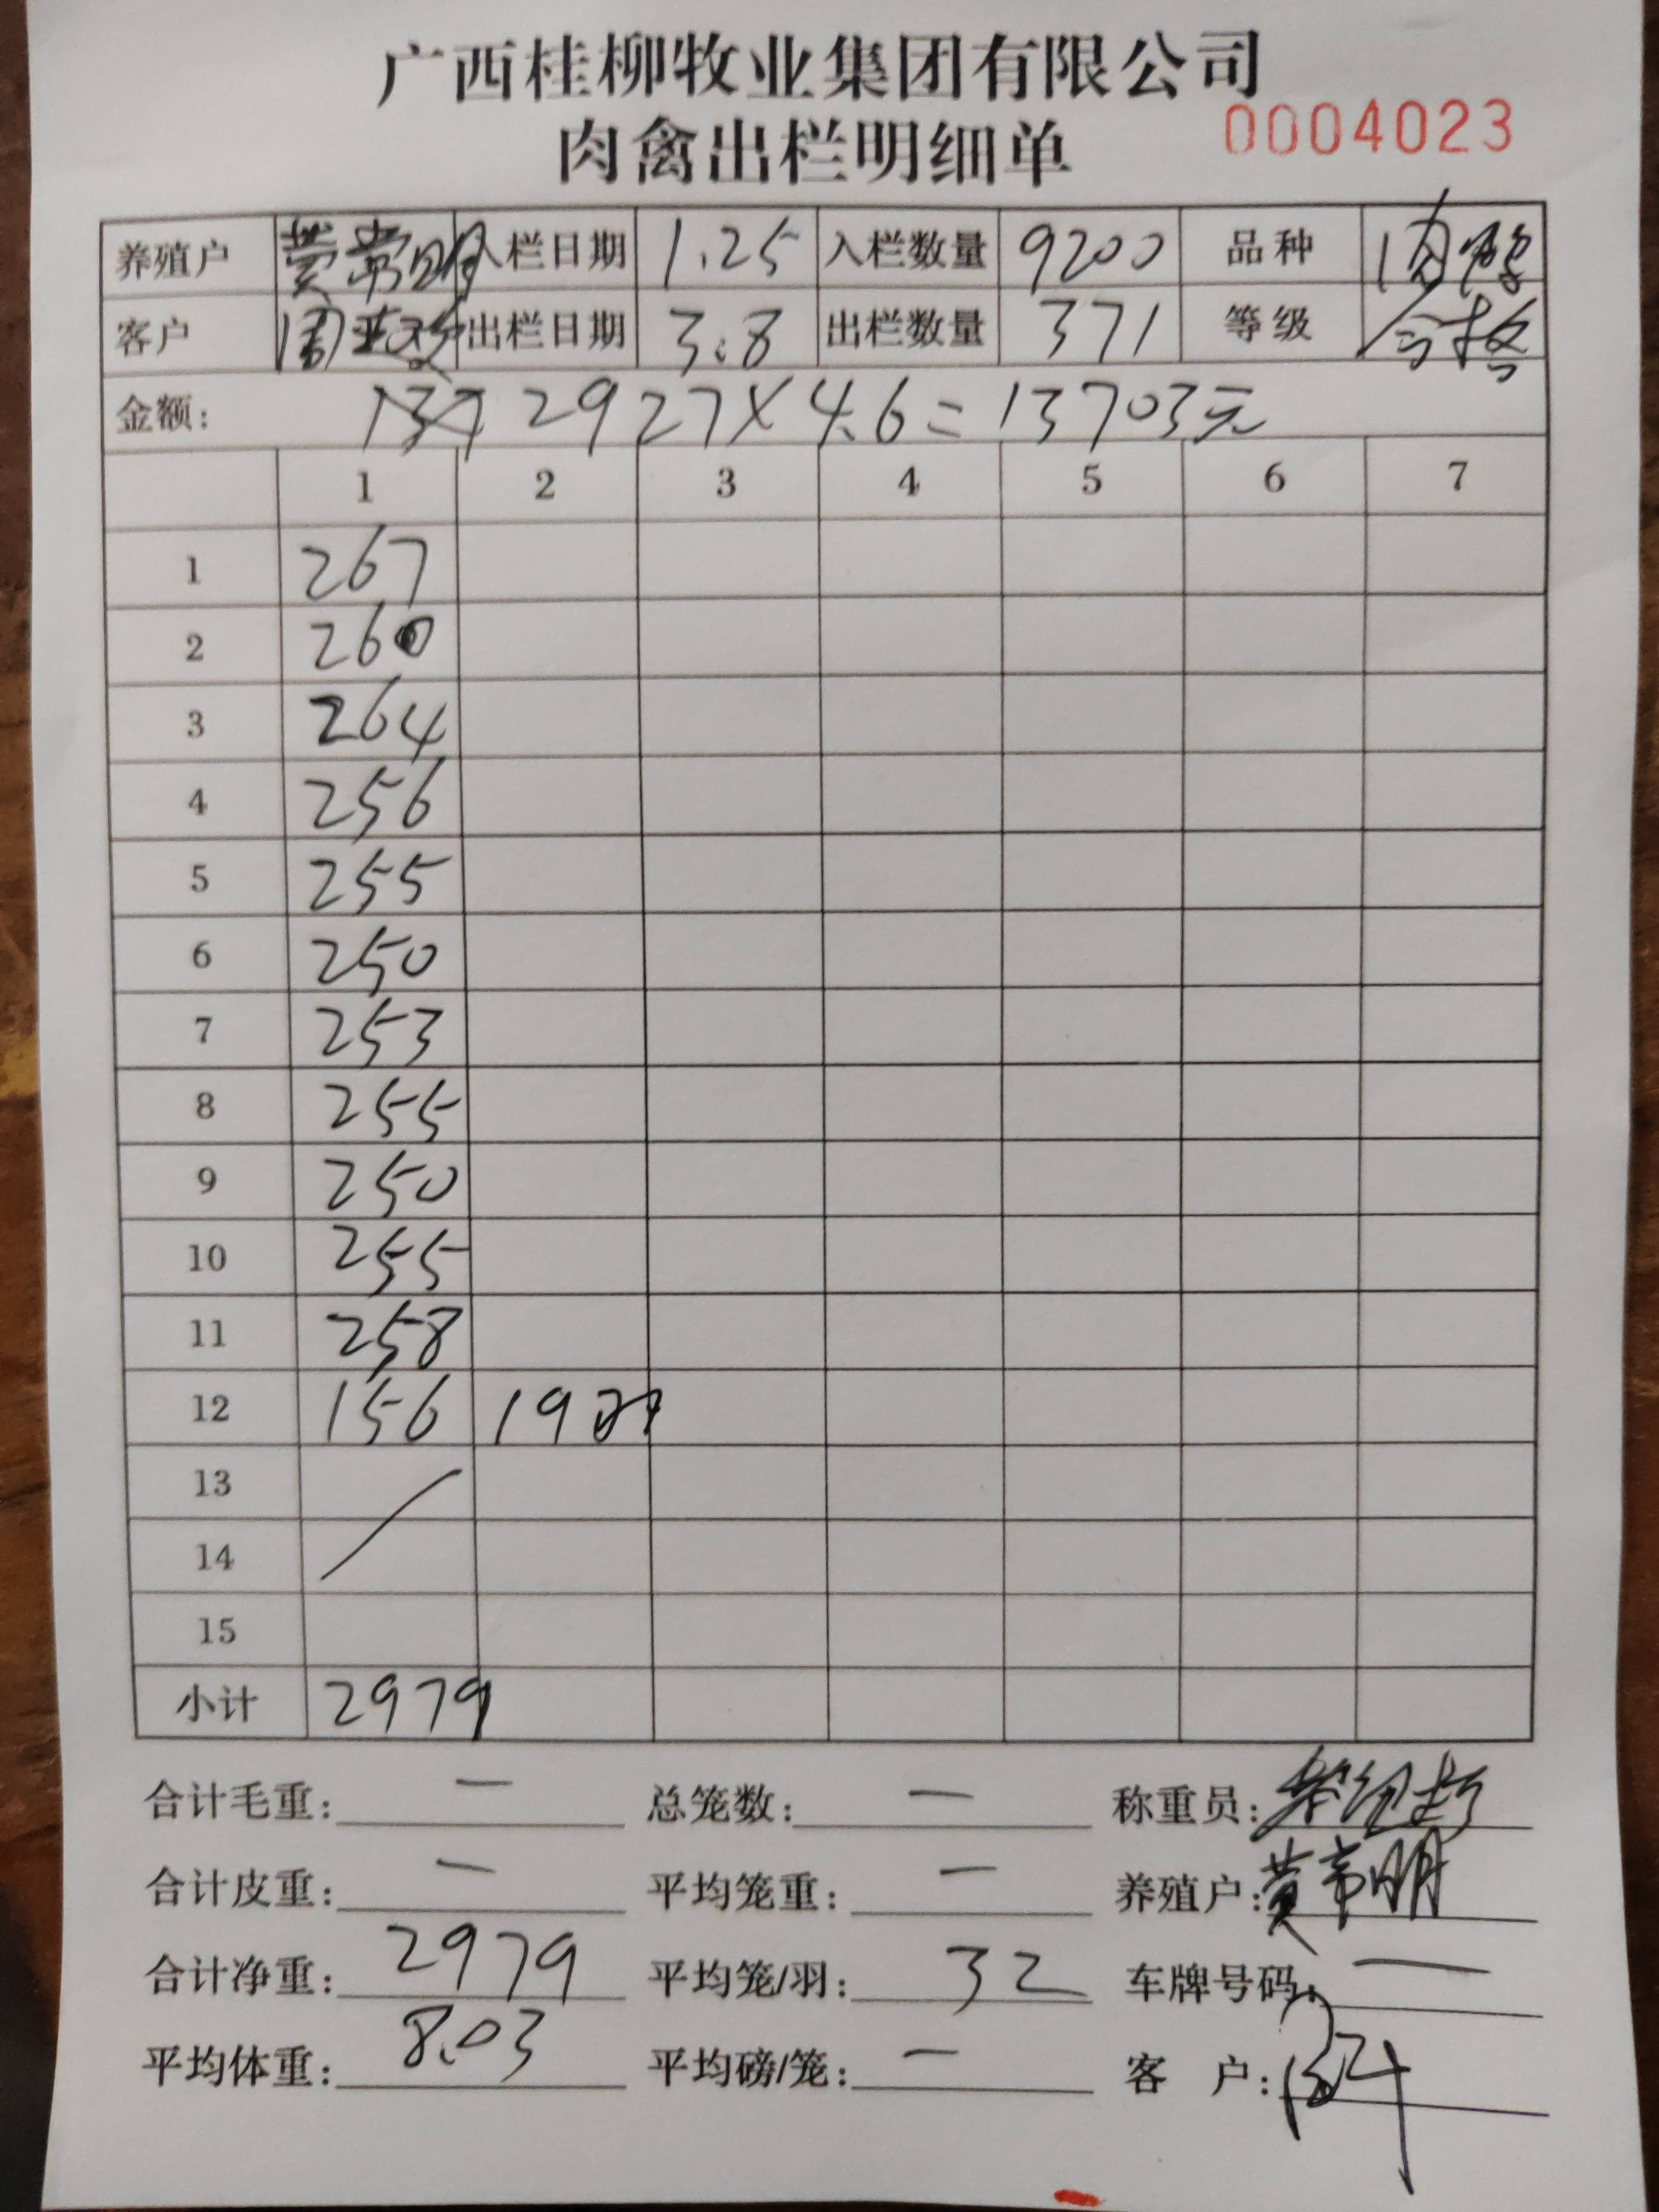 广西桂柳牧业集团有限公司
肉禽出栏明细单 0004023
养殖户 黄常明 入栏日期 1.25 入栏数量 9200 品种 肉鸭
客户 出栏日期 3.8 出栏数量 371 等级 合格
金额: 2927×4.6=13703元
1 2 3 4 5 6 7
1 267
2 260
3 264
4 256
5 255
6 250
7 253
8 255
9 250
10 255
11 258
12 156
13
14
15
小计 2979
合计毛重: 一 总笼数: 一 称重员:
合计皮重: 一 平均笼重: 一 养殖户: 黄常明
合计净重: 2979 平均笼/羽: 32 车牌号码: 一
平均体重: 8.03 平均磅/笼: 一 客 户: